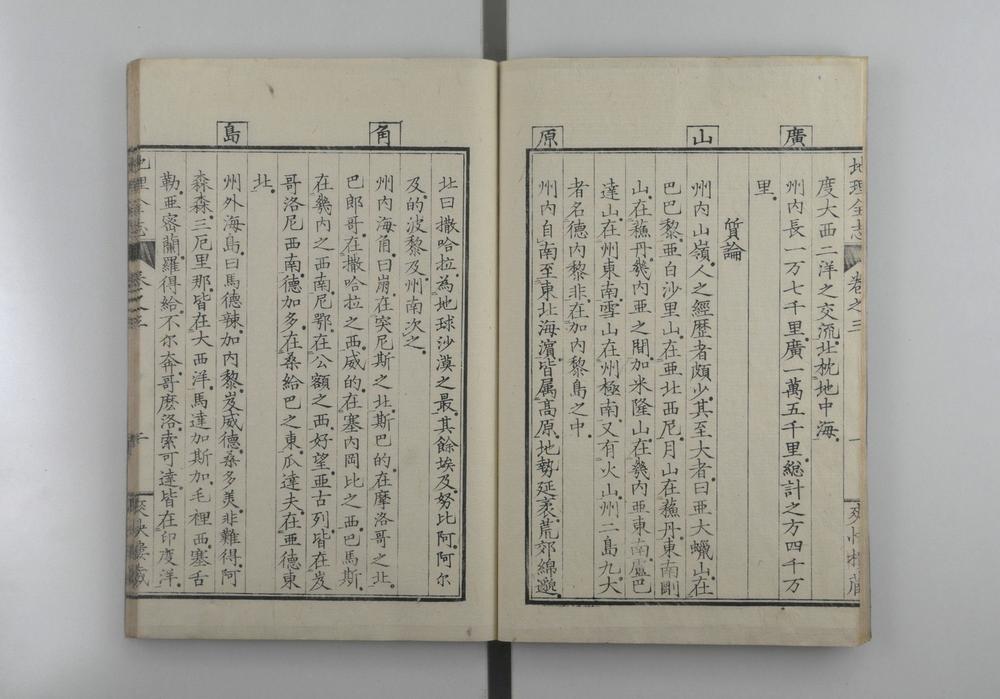 地理全志
卷之三
廣
山
原
度大西二洋之交流北枕地中海
州内長一万七千里廣一萬五千里總計之方四千万
里
質論
州内山嶺人之經歷者頗少其至大者曰亞大蠟山在
巴巴黎亞白沙里山在亞北西尼月山在蘓丹東南剛
山在蘓丹幾内亞之間加米隆山在幾内亞東南盧巴
達山在州東南雪山在州極南又有火山州二島九大
者名德内黎非在加内黎島之中
州内自南至東北海濱皆属高原地勢延袤荒郊綿邈
角
島
北曰撒哈拉為地球沙漠之最其餘埃及努比阿阿尔
及的波黎及州南次之
州内海角曰崩在突尼斯之北斯巴的在摩洛哥之北
巴郎哥在撒哈拉之西威的在塞内岡比之西巴馬斯
在幾内之西南尼鄂在公額之西好望亞古列皆在岌
哥洛尼西南德加多在桑給巴之東瓜達夫在亞德東
北
州外海島曰馬德辣加内黎岌威德桑多美非難得阿
森森三厄里那皆在大西洋馬達加斯加毛裡西塞舌
勒亞密蘭羅得給不尔奔哥麽洛索可達皆在印度洋
地理全志
卷之三